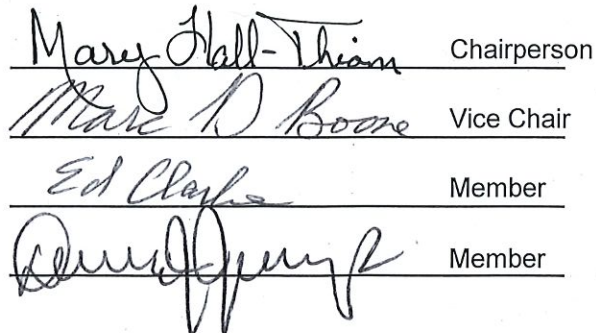 Mary Hall-Thiam Chairperson
Marc D Boone Vice Chair
Ed Clarke Member
Member